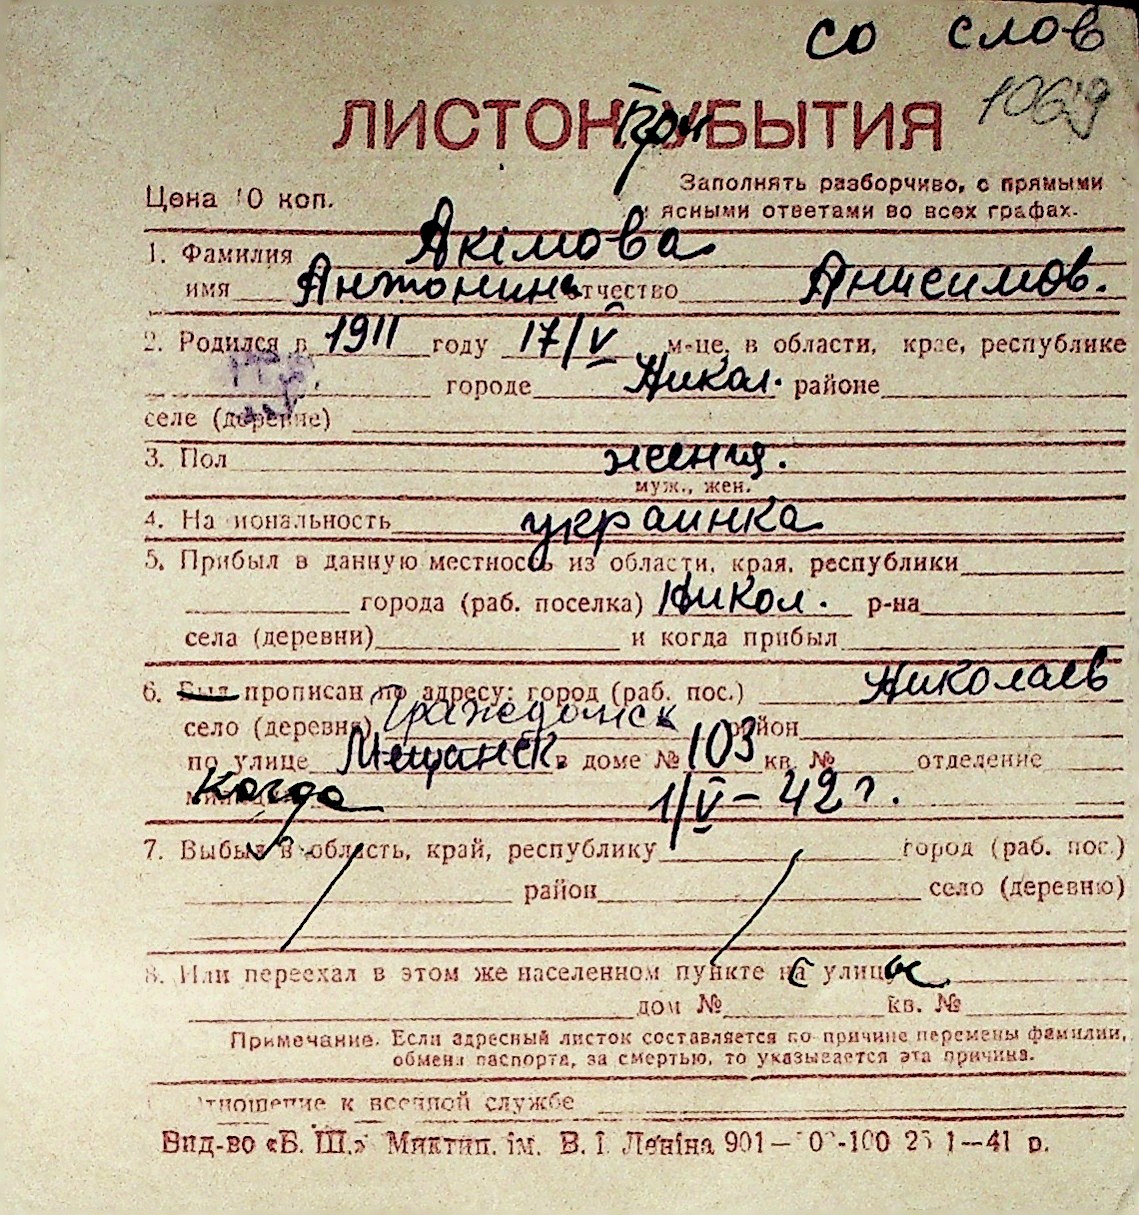 со слов
ЛИСТОК При УБЫТИЯ 1069
Цена 10 коп.
Заполнять разборчиво, с прямыми
и ясными ответами во всех графах.
1. Фамилия Акімова
имя Антонина отчество Анисимов.
2. Родился в 1911 году 17/V м-це, в области, крае, республике
городе Никол. районе
селе (деревне)
3. Пол женщ.
муж., жен.
4. Национальность украинка
5. Прибыл в данную местность из области, края, республики
города (раб. поселка) Никол. р-на
села (деревни) и когда прибыл
6. Был прописан по адресу: город (раб. пос.) Николаев
село (деревня) Гражданск район
по улице Мещанск. в доме № 103 кв. № отделение
когда 1/V – 42 г.
7. Выбыл в область, край, республику город (раб. пос.)
район село (деревню)
8. Или переехал в этом же населенном пункте с улицы
дом № кв. №
Примечание. Если адресный листок составляется по причине перемены фамилии,
обмена паспорта, за смертью, то указывается эта причина.
Отношение к военной службе
Вид-во «Б. Ш.» Миктип. ім. В. І. Леніна 901— 1—41 р.